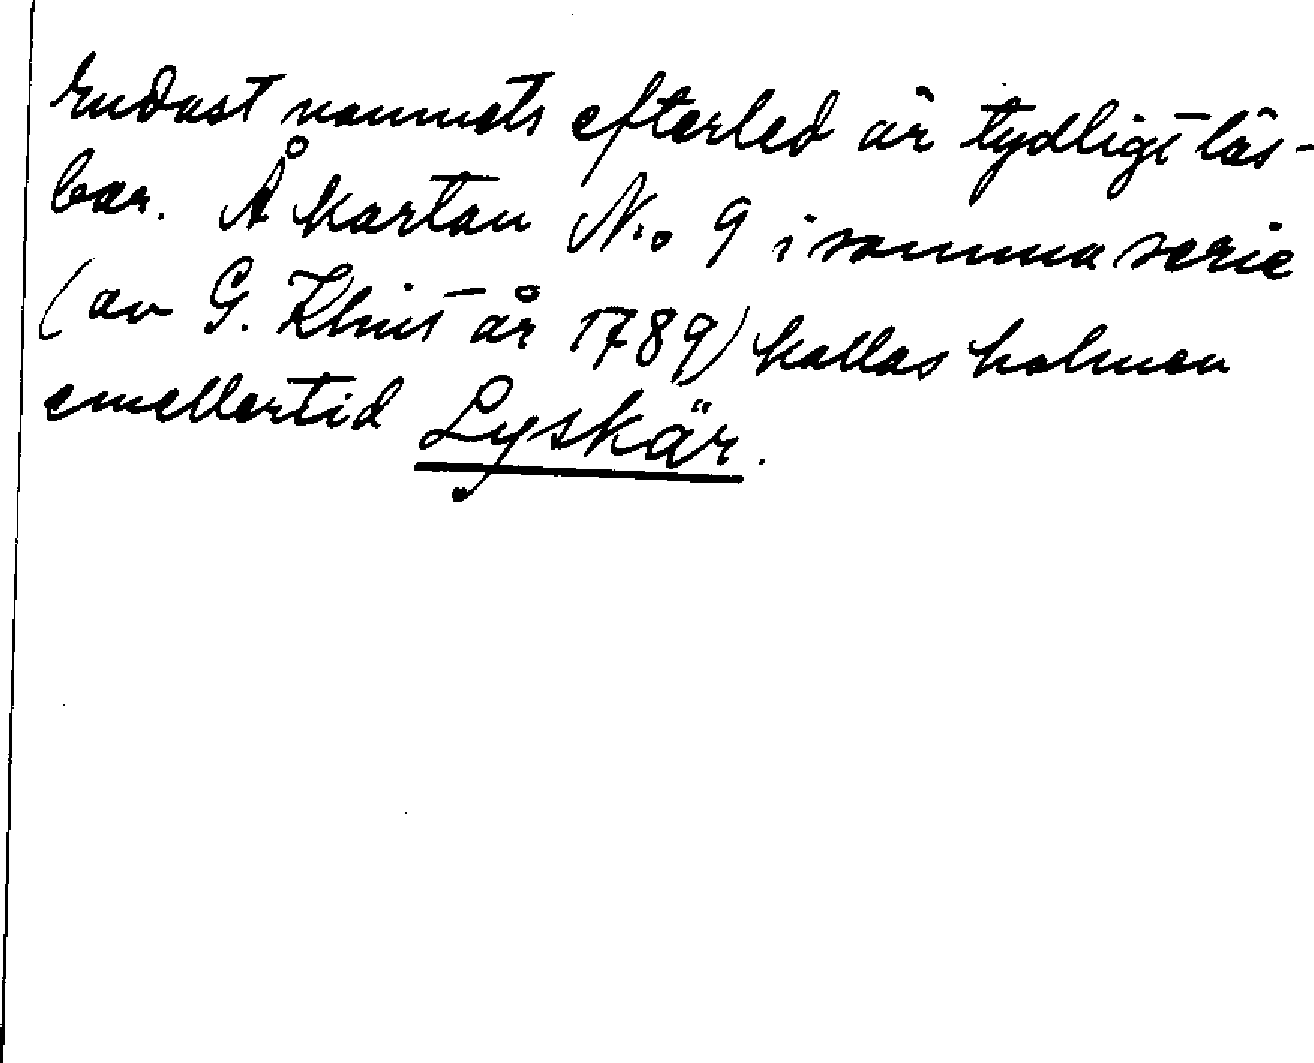 Endast namnets efterled är tydligt läs-
bar. Å kartan N:o 9 i samma serie
(av G. Klint år 1789) kallas holmen
emellertid Lyskär.